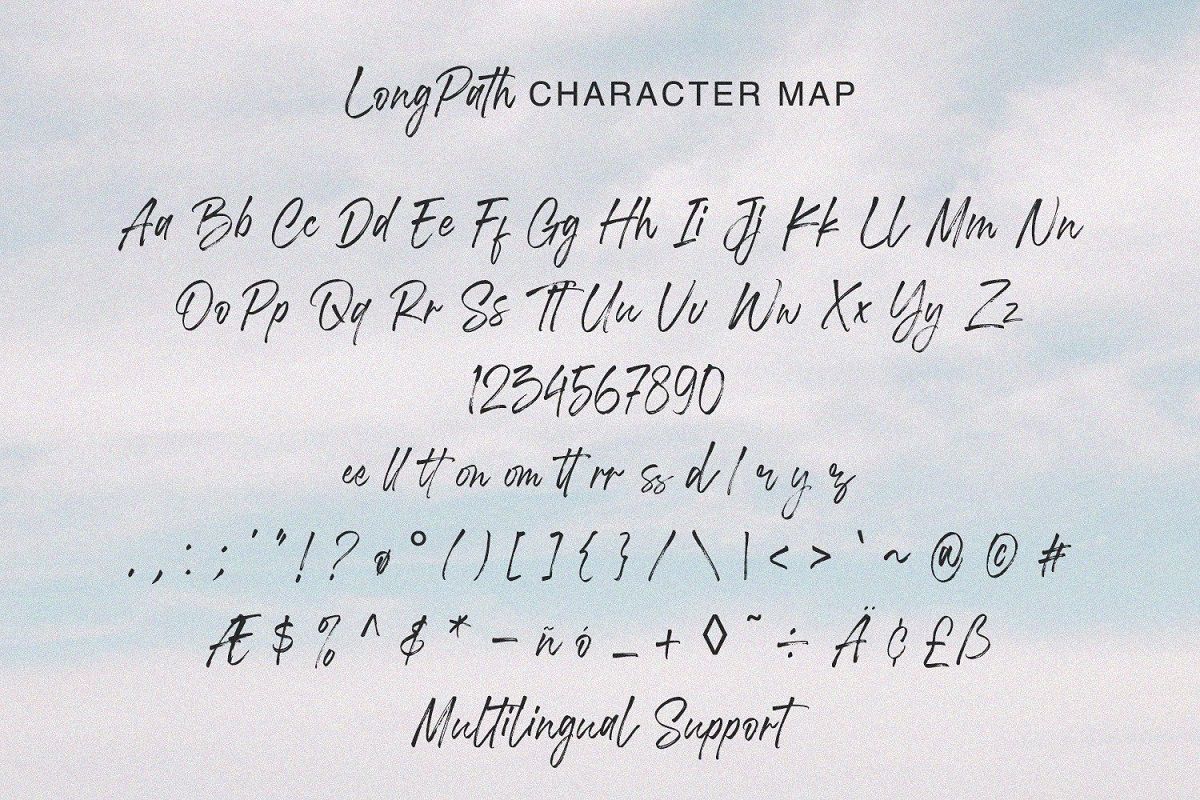 LongPath CHARACTER MAP
Aa Bb Cc Dd Ee Ff Gg Hh Ii Jj Kk Ll Mm Nn
Oo Pp Qq Rr Ss Tt Uu Vv Ww Xx Yy Zz
1234567890
ee ll tt on om tt rr ss d l r y z
. , : ; ' " ! ? ø ° ( ) [ ] { } / \ | < > ` ~ @ © #
Æ $ % ^ & * - ñ ó _ + ◊ ˜ ÷ Ä ¢ £ ß
Multilingual Support